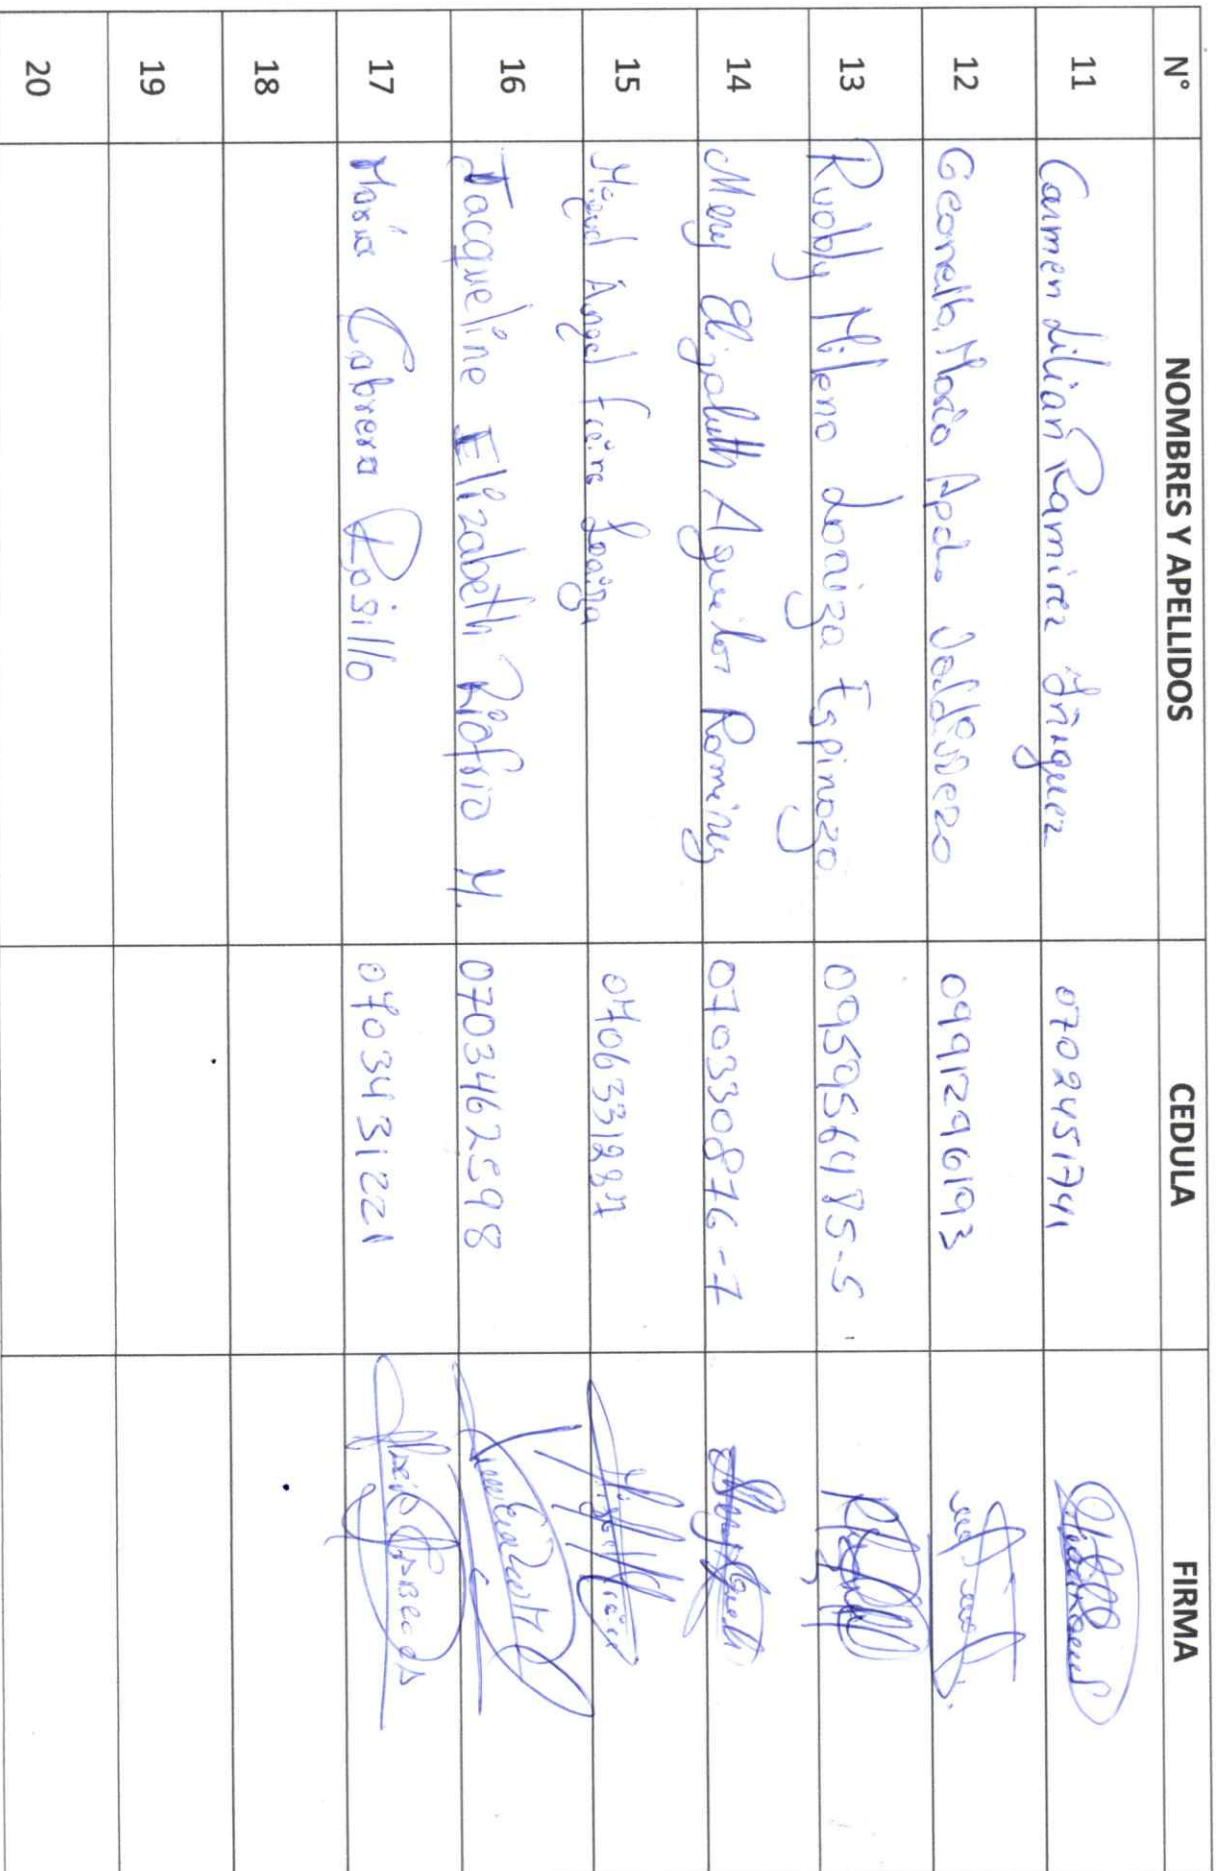 N° NOMBRES Y APELLIDOS CEDULA FIRMA
11 Carmen Lilian Ramirez Iñiguez 0702451741
12 Geonella Maria Valdiviezo 0991296193
13 Ruobly Mileno Loaiza Espinoza 095956485-5
14 Mery Elizabeth Aguilar Ramirez 070330876-7
15 Miguel Angel Freire Loaiza 0706331287
16 Jacqueline Elizabeth Riofrio M. 0703462598
17 María Cabrera Rosillo 0703431221
18
19
20